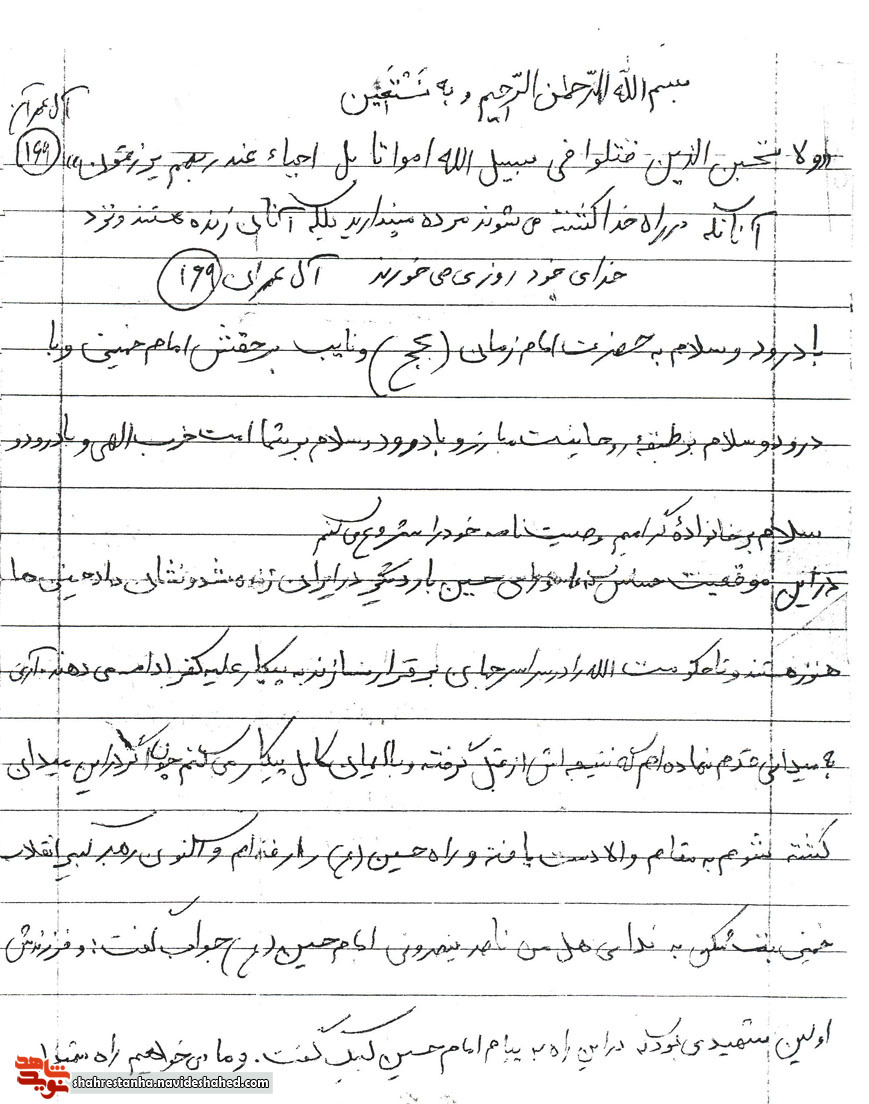 بسم الله الرّحمن الرّحیم و به نَسْتَعین
آل عمران
«ولا تحسبن الذین قتلوا فی سبیل الله امواتا بل احیاء عند ربهم یرزقون» ۱۶۹
آنانکه در راه خدا کشته می شوند مرده مپندارید بلکه آنان زنده هستند و نزد
خدای خود روزی می خورند آل عمران ۱۶۹
با درود و سلام به حضرت امام زمان (عج) و نایب بر حقش امام خمینی و با
درود و سلام بر طبقهٔ روحانیت مبارز و با درود و سلام بر شما امت حزب الهی و با درود و
سلام بر خانوادهٔ گرامیم وصیت نامه خود را شروع می کنم
در این موقعیت حساس که عاشورای حسین بار دیگر در ایران زنده شد و نشان داد حسینی ها
هنوز هستند و تا حکومت الله را در سراسر جهان برقرار نسازند به پیکار علیه کفر ادامه می دهند. آری
به میدانی قدم نهاده ام که نتیجه اش از قبل گرفته و با ایمان کامل پیکار می کنم چون اگر در این میدان
کشته شوم به مقام والا دست یافته و راه حسین (ع) را رفته ام و اکنون رهبر کبیر انقلاب
خمینی بت شکن به ندای هل من ناصر ینصرونی امام حسین (ع) جواب گفت: و فرزندش
اولین شهیدی بود که در این راه به پیام امام حسین لبیک گفت. و ما می خواهیم راه شهدا
شاهد
نوید
shahrestanha.navideshahed.com